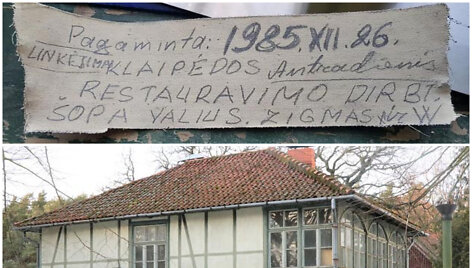 Pagaminta: 1985.XII.26.
LINKĖJIMAI KLAIPĖDOS Antradienis
RESTAURAVIMO DIRBT
ŠOPA VALIUS. ZIGMAS